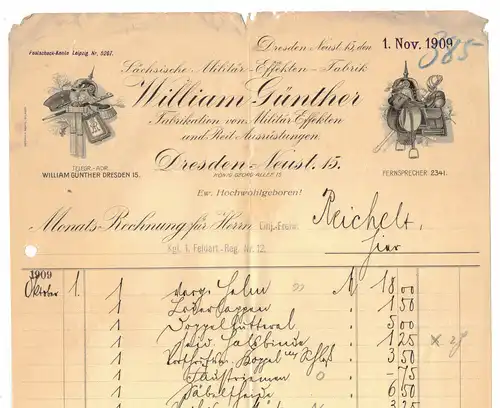 Postscheck-Konto Leipzig Nr. 5267.
Dresden Neust. 15, den 1. Nov. 1909
385
Sächsische Militär-Effekten-Fabrik
William Günther
Fabrikation von Militär-Effekten
und Reit-Ausrüstungen.
Dresden-Neust. 15.
KÖNIG GEORG ALLEE 15
TELEGR.-ADR.
WILLIAM GÜNTHER DRESDEN 15.
FERNSPRECHER 2341.
Ew. Hochwohlgeboren!
Monats-Rechnung für Herrn Einj.-Freiw. Reichelt,
Kgl. 1. Feldart.-Reg. Nr. 12. hier
1909
Oktober 1. 1 Helm M 18 00
1 1 50
1 Doppelfutteral " 5 00
1 Halsbinde " 1 25
1 Koppel " 3 50
1 Faustriemen " - 75
1 " 6 50
1 3 25